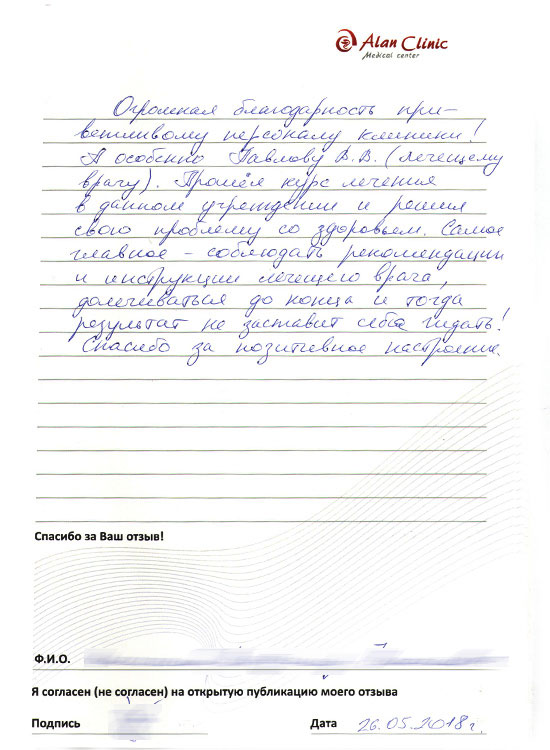 Alan Clinic
Medical center
Огромная благодарность при-
ветливому персоналу клиники!
А особенно Павлову В.В. (лечещему
врачу). Прошёл курс лечения
в данном учреждении и решил
свою проблему со здоровьем. Самое
главное - соблюдать рекомендации
и инструкции лечещего врача,
долечиваться до конца и тогда
результат не заставит себя ждать!
Спасибо за позитивное настроение.
Спасибо за Ваш отзыв!
Ф.И.О.
Я согласен (не согласен) на открытую публикацию моего отзыва
Подпись Дата 26.05.2018 г.